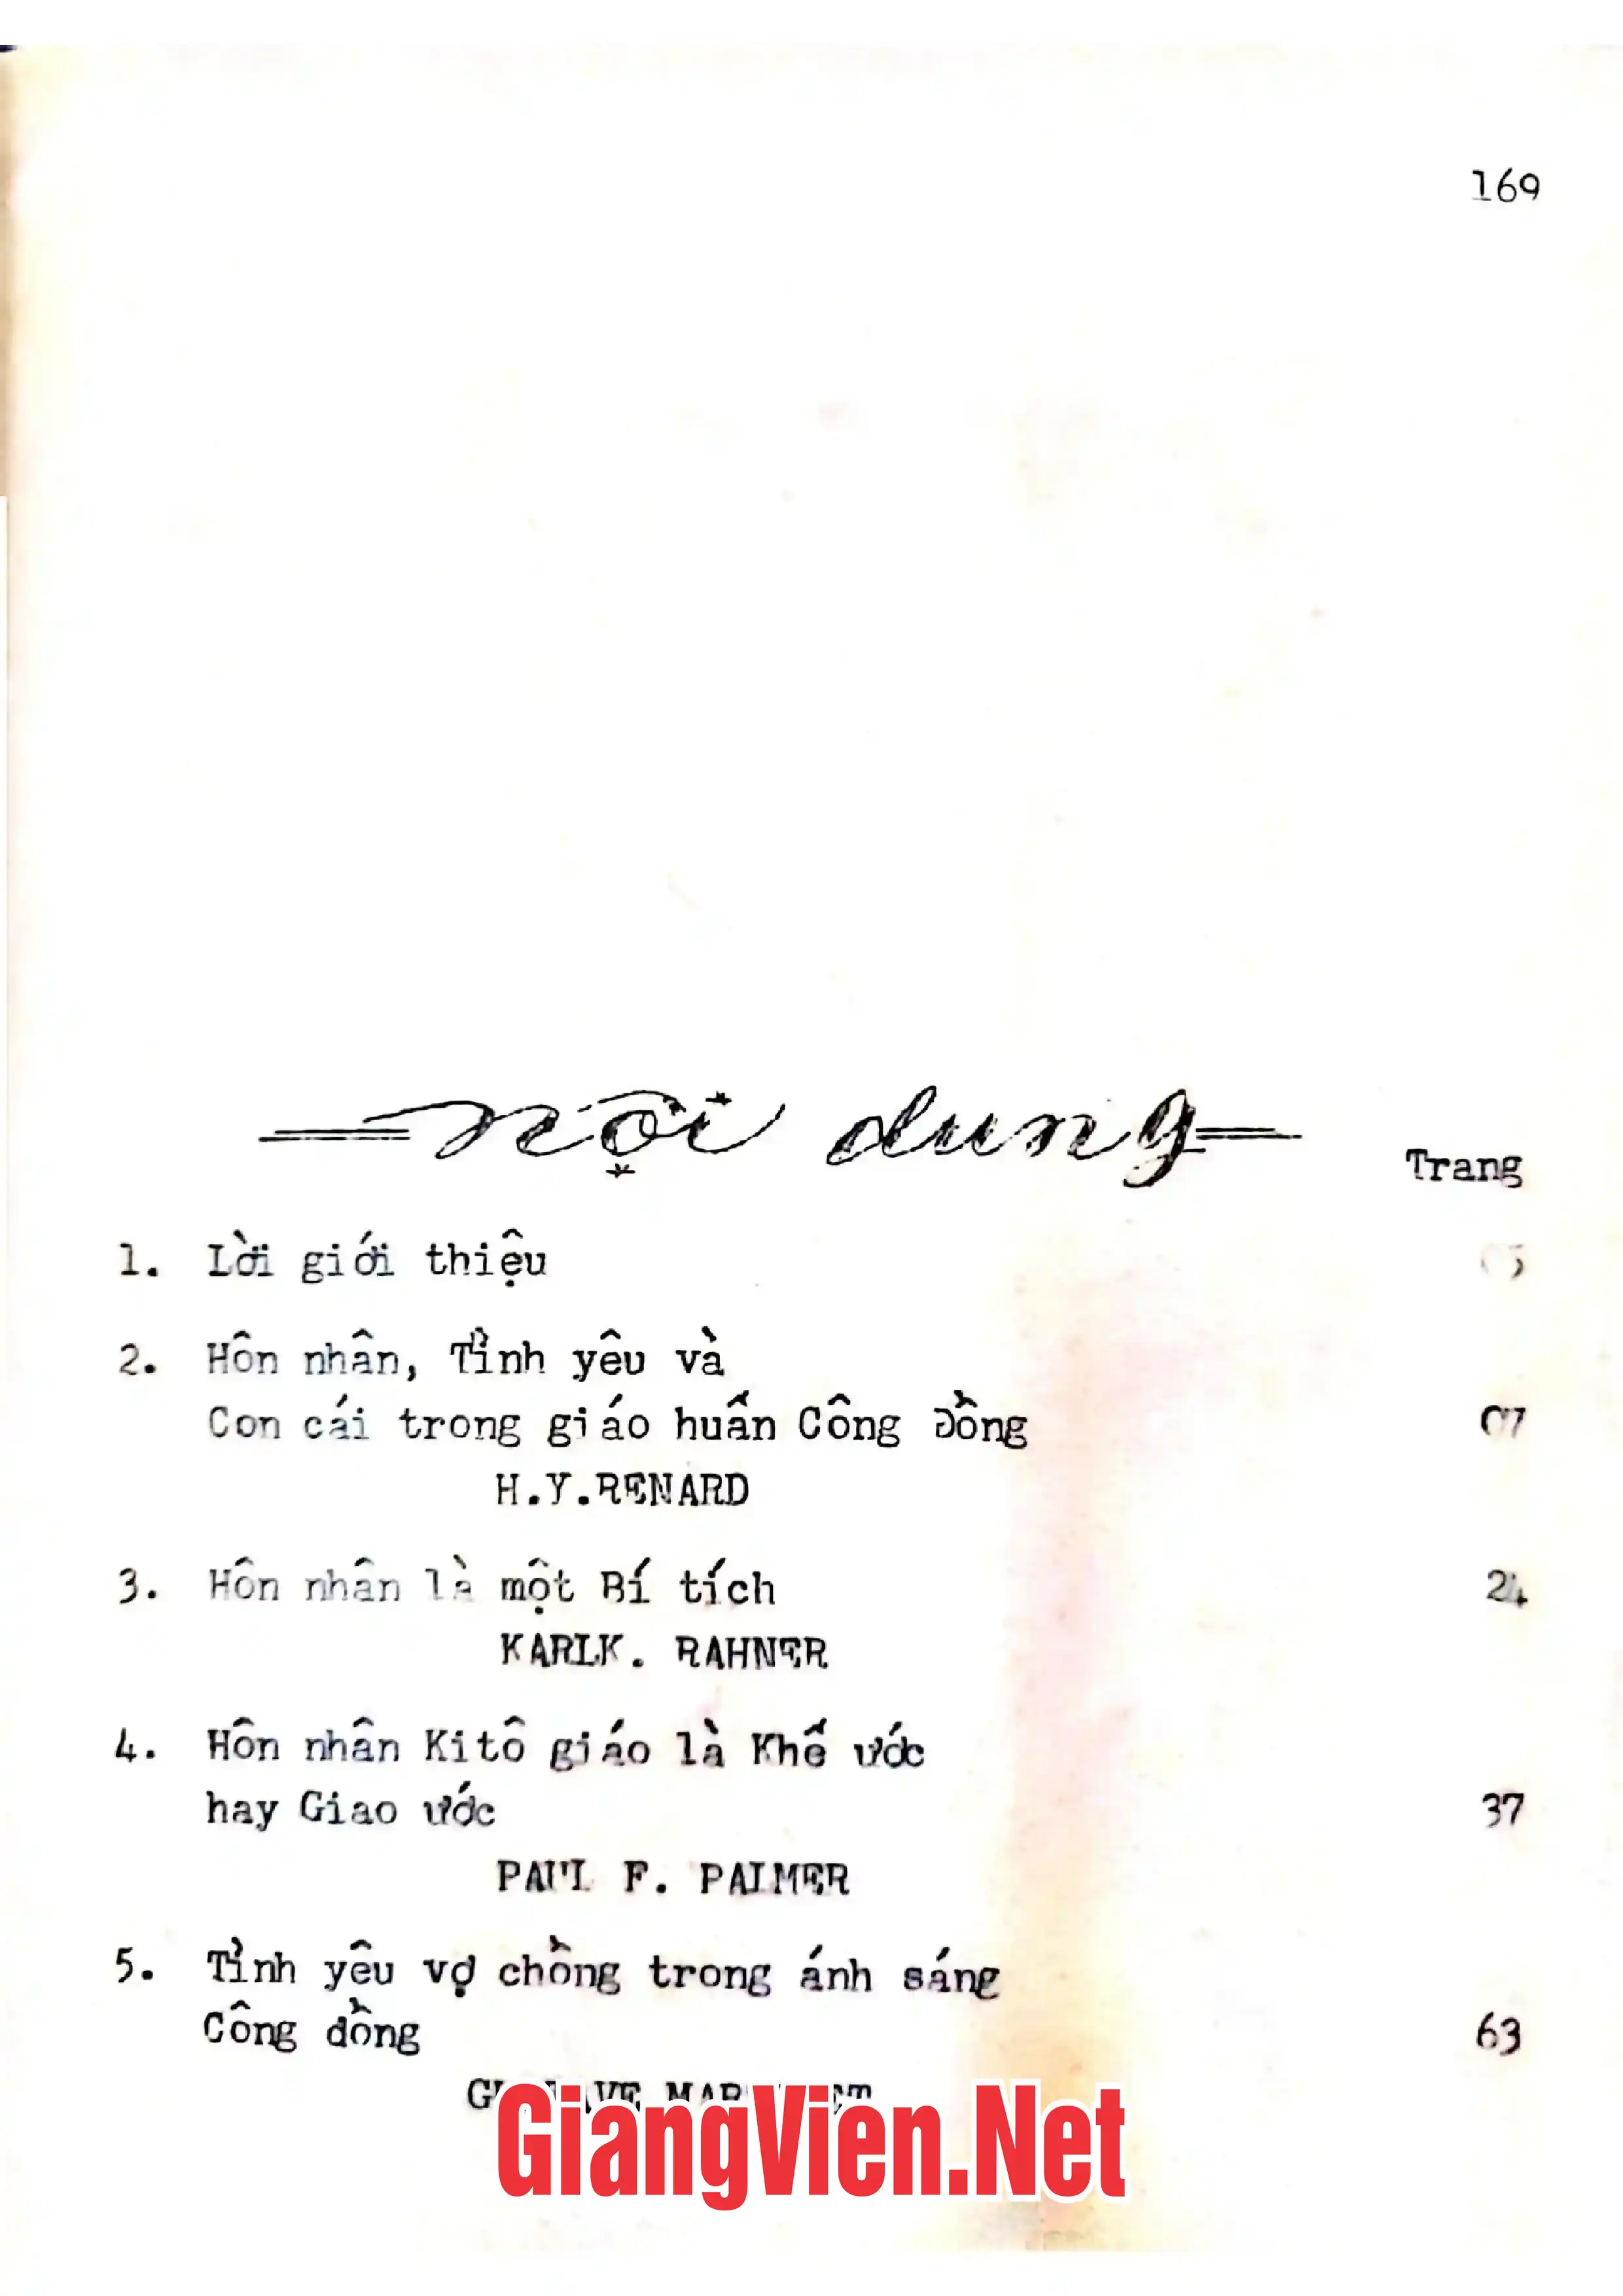 169
Nội dung
Trang
1. Lời giới thiệu
2. Hôn nhân, Tình yêu và
Con cái trong giáo huấn Công Đồng 07
H.Y.RENARD
3. Hôn nhân là một Bí tích 24
KARLK. RAHNER
4. Hôn nhân Kitô giáo là Khế ước
hay Giao ước 37
PAUL F. PALMER
5. Tình yêu vợ chồng trong ánh sáng
Công đồng 63
GiangVien.Net